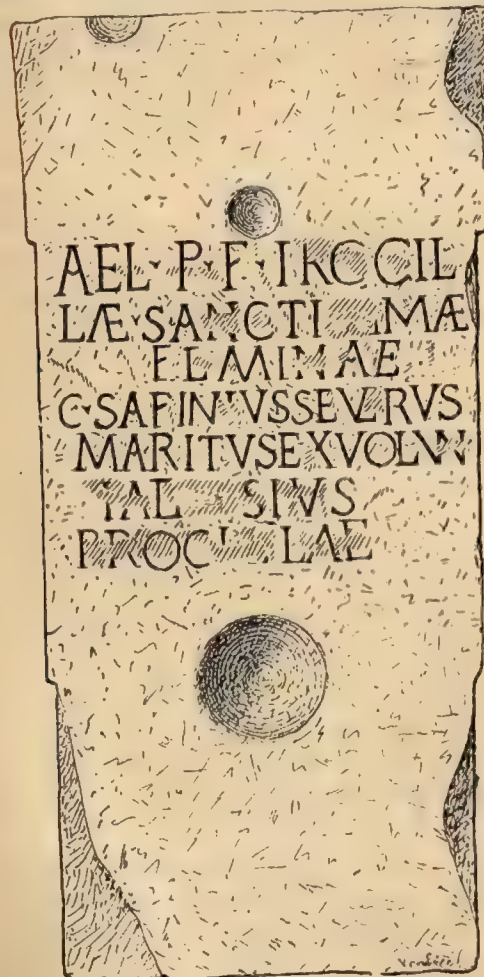 AEL · P · F · PROCCIL
LÆ · SANCTI MÆ
FEMINAE
C · SAFINIVS SEVERVS
MARITVS EX VOLVN
SIVS
PROC LAE